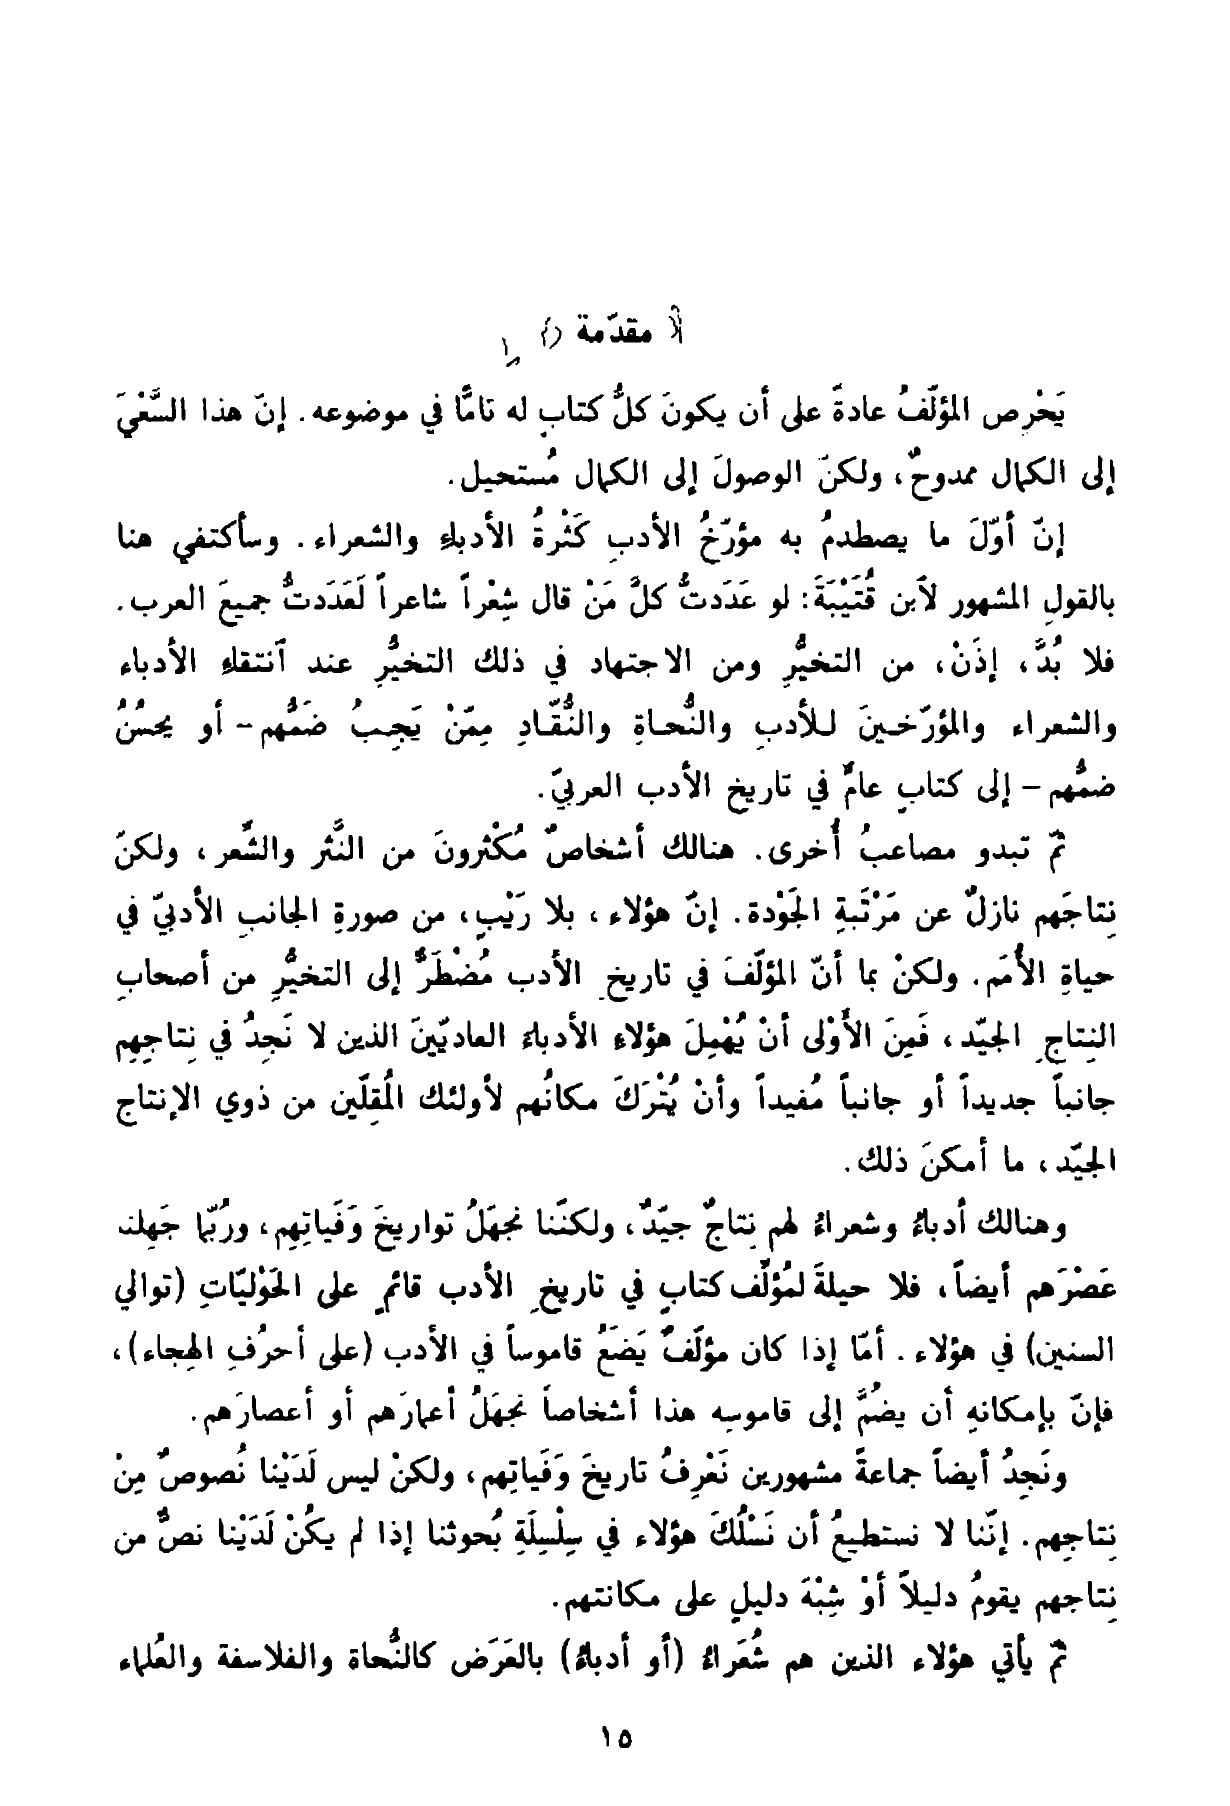 مقدّمة
يَحْرِص المؤلّفُ عادةً على أن يكونَ كلُّ كتابٍ له تامًّا في موضوعه. إنّ هذا السَّعْيَ
إلى الكمال ممدوحٌ، ولكنّ الوصولَ إلى الكمال مُستحيل.
إنّ أوّلَ ما يصطدمُ به مؤرّخُ الأدبِ كَثْرةُ الأدباءِ والشعراء. وسأكتفي هنا
بالقولِ المشهور لآبن قُتَيْبَةَ: لو عَدَدتُّ كلَّ مَنْ قال شِعْراً شاعراً لَعَدَدتُّ جميعَ العرب.
فلا بُدَّ، إذَنْ، من التخيُّرِ ومن الاجتهاد في ذلك التخيُّرِ عند آنتقاءِ الأدباء
والشعراء والمؤرّخينَ للأدبِ والنُّحاةِ والنُّقّادِ مِمّنْ يَجِبُ ضَمُّهم - أو يحسُنُ
ضمُّهم - إلى كتابٍ عامٍّ في تاريخ الأدب العربيّ.
ثمّ تبدو مصاعبُ أُخرى. هنالك أشخاصٌ مُكْثرونَ من النَّثر والشِّعر، ولكنّ
نِتاجَهم نازلٌ عن مَرْتَبةِ الجَوْدة. إنّ هؤلاء، بلا رَيْبٍ، من صورةِ الجانبِ الأدبيّ في
حياةِ الأُمَم. ولكنْ بما أنّ المؤلّفَ في تاريخِ الأدب مُضْطَرٌّ إلى التخيُّرِ من أصحابِ
النِتاجِ الجيّد، فَمِنَ الأَوْلى أنْ يُهْمِلَ هؤلاءِ الأدباءَ العاديّينَ الذين لا نَجِدُ في نِتاجِهِم
جانباً جديداً أو جانباً مُفيداً وأنْ يُتْرَكَ مكانُهم لأولئك المُقِلّين من ذوي الإنتاج
الجيّد، ما أمكنَ ذلك.
وهنالك أدباءُ وشعراءُ لهم نِتاجٌ جيّدٌ، ولكنّنا نجهَلُ تواريخَ وَفَياتِهِم، ورُبّما جَهِلنا
عَصْرَهم أيضاً، فلا حيلةَ لمُؤلّف كتابٍ في تاريخِ الأدب قائمٍ على الحَوْليّاتِ (توالي
السنين) في هؤلاء. أمّا إذا كان مؤلّفٌ يَضَعُ قاموساً في الأدب (على أحرُفِ الهجاء)،
فإنّ بإمكانهِ أن يضُمَّ إلى قاموسِه هذا أشخاصاً نجهَلُ أعمارَهم أو أعصارَهم.
ونَجِدُ أيضاً جماعةً مشهورين نَعْرِفُ تاريخَ وَفَياتِهم، ولكنْ ليس لَدَيْنا نُصوصٌ مِنْ
نِتاجِهم. إنّنا لا نستطيعُ أن نَسْلُكَ هؤلاء في سِلْسِلَةِ بُحوثنا إذا لم يكُنْ لَدَيْنا نصٌّ من
نِتاجهم يقومُ دليلاً أوْ شِبْهَ دليلٍ على مكانتهم.
ثمّ يأتي هؤلاء الذين هم شُعَراءُ (أو أدباءُ) بالعَرَض كالنُّحاة والفلاسفة والعُلماء
١٥